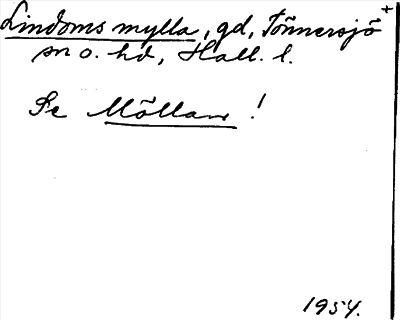 Lindoms mylla, gd, Tönnersjö +
sn o. hd, Hall. l.
Se Möllan !
1954.